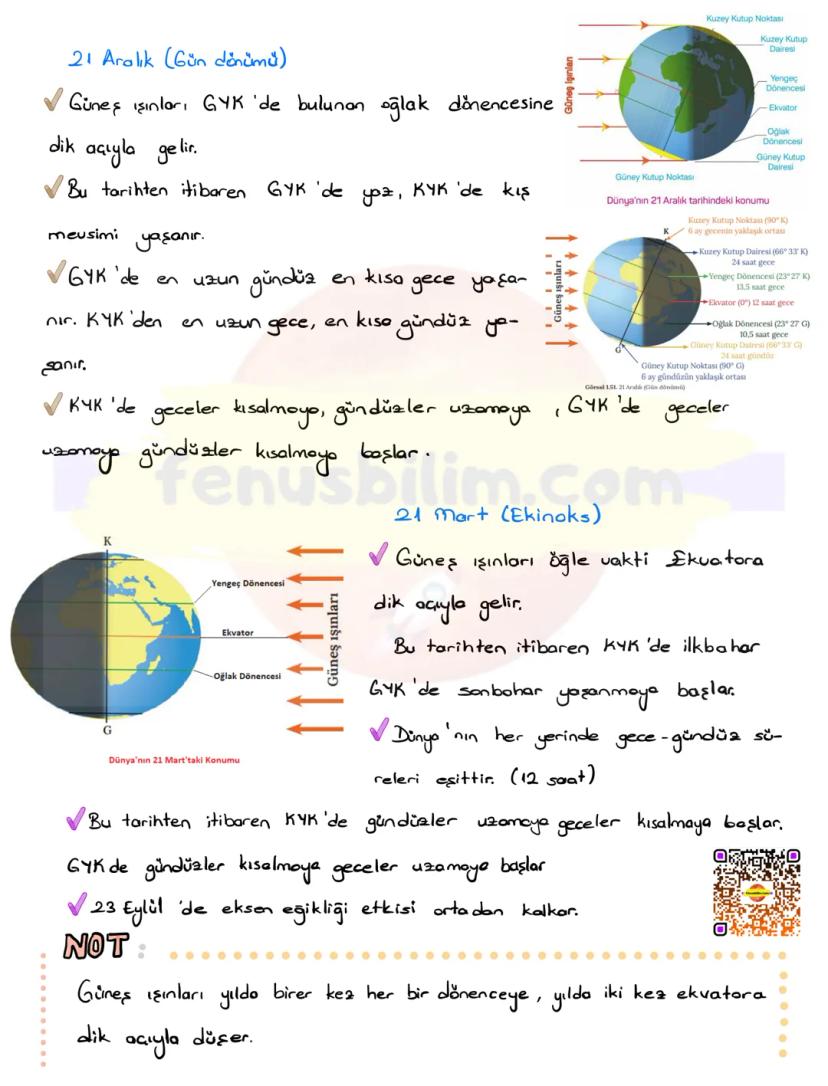 21 Aralık (Gün dönümü)
Güneş ışınları GYK'de bulunan oğlak dönencesine
dik açıyla gelir.
Bu tarihten itibaren GYK'de yaz, KYK'de kış
mevsimi yaşanır.
GYK'de en uzun gündüz en kısa gece yaşa-
nır. KYK'den en uzun gece, en kısa gündüz ya-
şanır.
KYK'de geceler kısalmaya, gündüzler uzamaya, GYK'de geceler
uzamaya gündüzler kısalmaya başlar.
Güneş Işınları
Kuzey Kutup Noktası
Kuzey Kutup
Dairesi
Yengeç
Dönencesi
Ekvator
Oğlak
Dönencesi
Güney Kutup
Dairesi
Güney Kutup Noktası
Dünya'nın 21 Aralık tarihindeki konumu
Güneş ışınları
K
G
Kuzey Kutup Noktası (90° K)
6 ay gecenin yaklaşık ortası
Kuzey Kutup Dairesi (66° 33' K)
24 saat gece
Yengeç Dönencesi (23° 27' K)
13,5 saat gece
Ekvator (0°) 12 saat gece
Oğlak Dönencesi (23° 27' G)
10,5 saat gece
Güney Kutup Dairesi (66° 33' G)
24 saat gündüz
Güney Kutup Noktası (90° G)
6 ay gündüzün yaklaşık ortası
Görsel 1.51. 21 Aralık (Gün dönümü)
fenusbilim.com
21 Mart (Ekinoks)
Güneş ışınları öğle vakti Ekvatora
dik açıyla gelir.
Bu tarihten itibaren KYK'de ilkbahar
GYK'de sonbahar yaşanmaya başlar.
Dünya'nın her yerinde gece-gündüz sü-
releri eşittir. (12 saat)
K
Yengeç Dönencesi
Ekvator
Oğlak Dönencesi
Güneş ışınları
G
Dünya'nın 21 Mart'taki Konumu
Bu tarihten itibaren KYK'de gündüzler uzamaya geceler kısalmaya başlar.
GYK de gündüzler kısalmaya geceler uzamaya başlar
23 Eylül'de eksen eğikliği etkisi ortadan kalkar.
NOT:
Güneş ışınları yılda birer kez her bir dönenceye, yılda iki kez ekvatora
dik açıyla düşer.